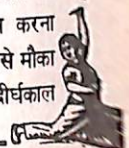 करना
से मौका
दीर्घकाल